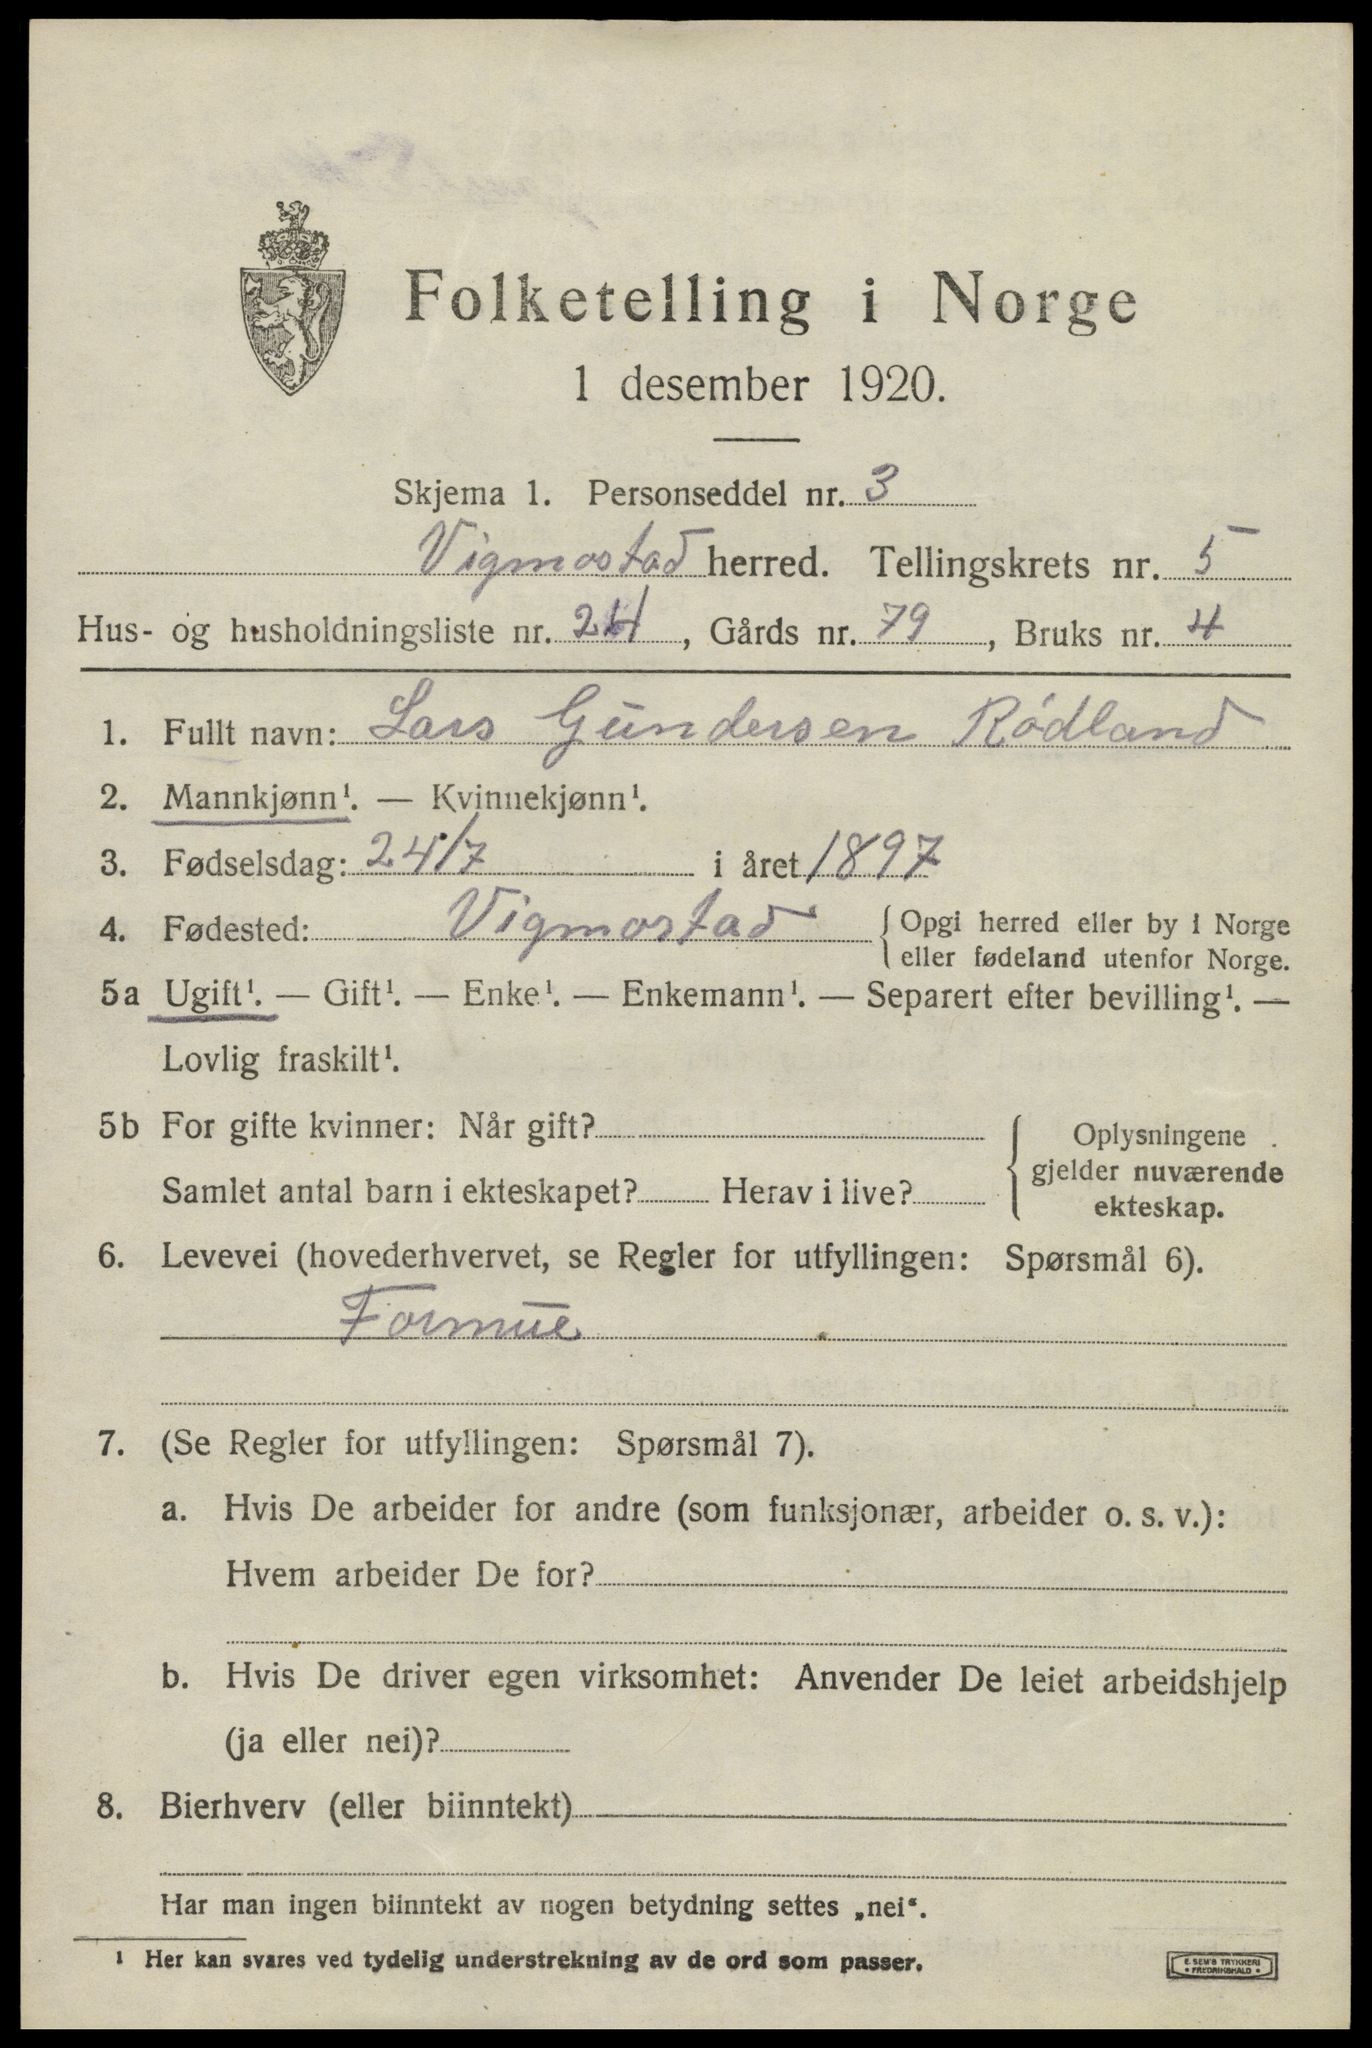 Folketelling i Norge
1 desember 1920.
Skjema 1. Personseddel nr. 3
Vigmostad herred. Tellingskrets nr. 5
Hus- og husholdningsliste nr. 24, Gårds nr. 79, Bruks nr. 4
1. Fullt navn: Lars Gundersen Rødland
2. Mannkjønn¹. — Kvinnekjønn¹.
3. Fødselsdag: 24/7 i året 1897
4. Fødested: Vigmostad { Opgi herred eller by i Norge
eller fødeland utenfor Norge.
5a Ugift¹. — Gift¹. — Enke¹. — Enkemann¹. — Separert efter bevilling¹. —
Lovlig fraskilt¹.
5b For gifte kvinner: Når gift?
Samlet antal barn i ekteskapet? Herav i live?
{ Oplysningene
gjelder nuværende
ekteskap.
6. Levevei (hovederhvervet, se Regler for utfyllingen: Spørsmål 6).
Formue
7. (Se Regler for utfyllingen: Spørsmål 7).
a. Hvis De arbeider for andre (som funksjonær, arbeider o. s. v.):
Hvem arbeider De for?
b. Hvis De driver egen virksomhet: Anvender De leiet arbeidshjelp
(ja eller nei)?
8. Bierhverv (eller biinntekt)
Har man ingen biinntekt av nogen betydning settes „nei“.
¹ Her kan svares ved tydelig understrekning av de ord som passer.
E. SEM'S TRYKKERI
• FREDRIKSHALD •